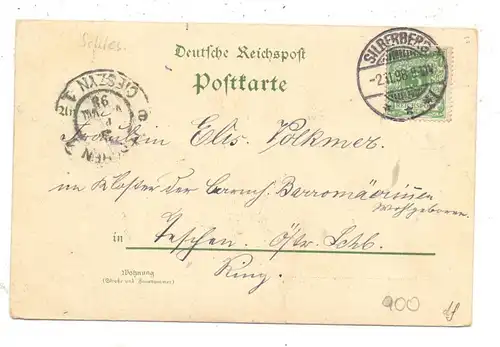 Schles.
Deutsche Reichspost
Postkarte
SILBERBERG
98
TESCHEN
CIESZYN
98
An
Fräulein Elis. Volkmer
im Kloster der barmh. Borromäerinnen
Wohlgeboren
in Teschen. Östr. Schl.
Wohnung
(Straße und Hausnummer)
Ring.
900